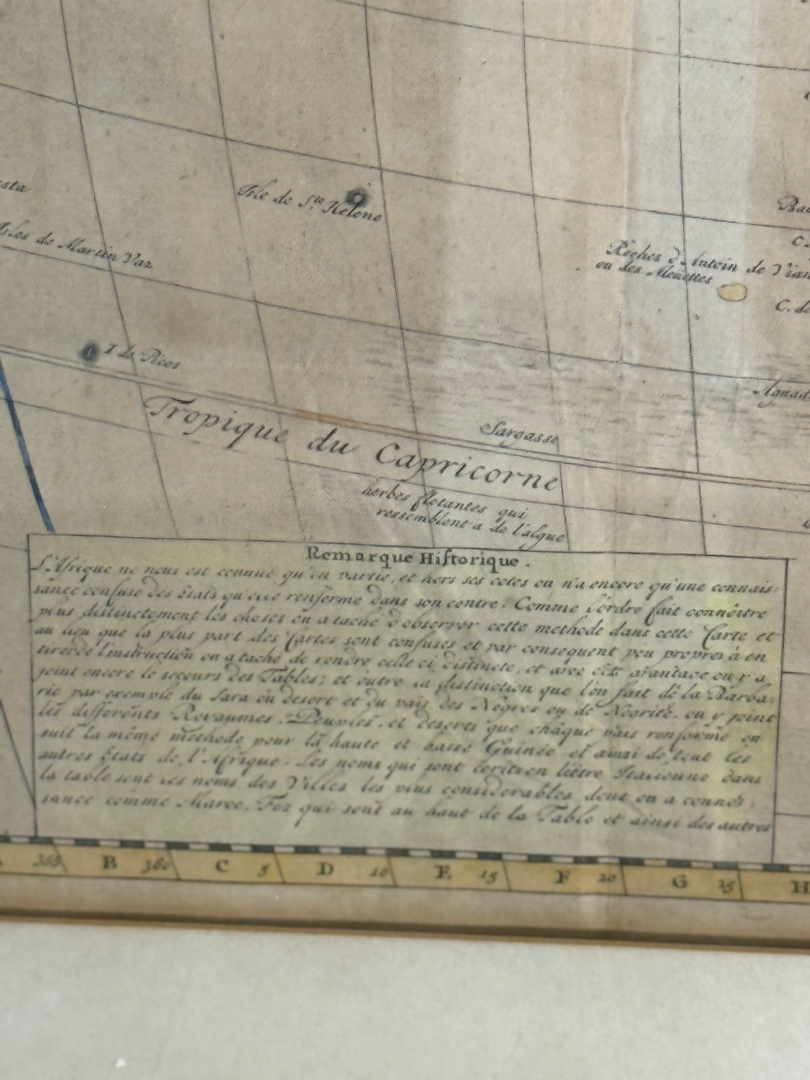 Isle de S.te Helene
Isles de Martin Vaz
Roches d'Antoin de Vian
ou des Alouettes
C. de
I de Picos
Aguad
Sargasse
Tropique du Capricorne
herbes flotantes qui
ressemblent a de l'algue
Remarque Historique.
L'Afrique ne nous est connue qu'en partie, et hors ses cotes on n'a encore qu'une connais:
sance confuse des Etats qu'elle renferme dans son centre. Comme l'ordre fait connoitre
plus distinctement les choses on a taché d'observer cette methode dans cette Carte et
au lieu que la plus part des Cartes sont confuses et par consequent peu propres à en
tirer de l'instruction on a taché de rendre celle ci distincte, et avec cet avantage on y a
joint encore le secours des Tables; et outre la distinction que l'on fait de la Barba:
rie par exemple du Sara ou desert et du païs des Negres ou de Negritie, on y joint
les differents Royaumes, Peuples, et deserts que châque païs renferme on
suit la même methode pour la haute et basse Guinée et ainsi de tout les
autres Etats de l'Afrique. Les noms qui sont écrits en lettre Italienne dans
la table sont les noms des Villes les plus considerables dont on a connois:
sance comme Maroc, Fez qui sont au haut de la Table et ainsi des autres
B 360 C 5 D 10 E 15 F 20 G 25 H